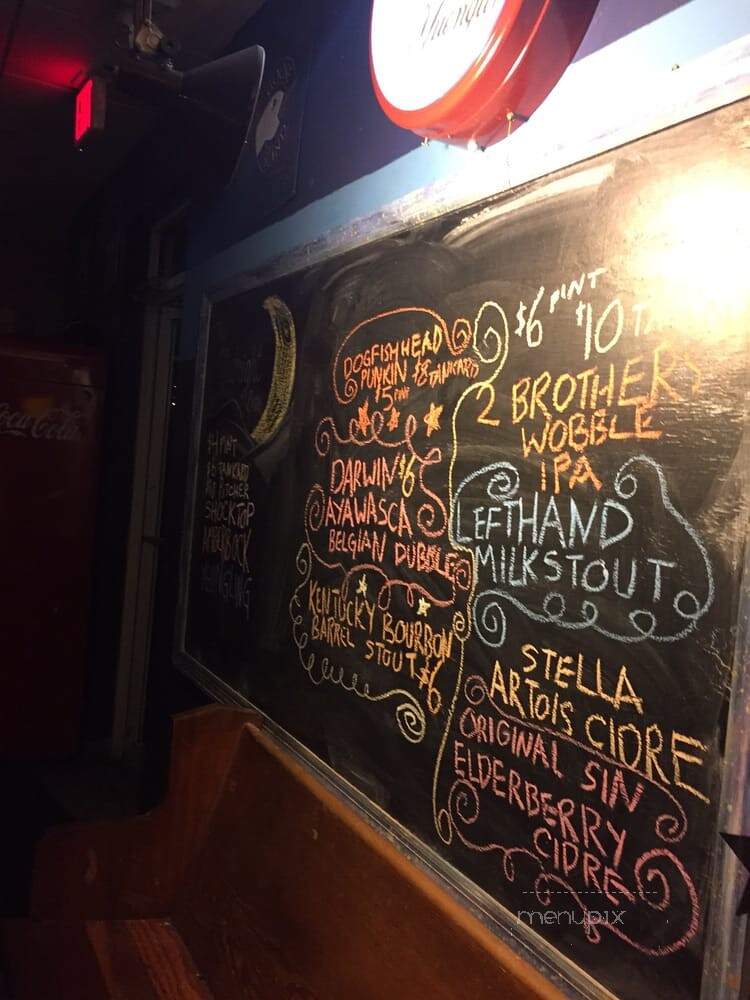 Yuengling
Coca-Cola
$4 PINT
$6 TANKARD
PITCHER
SHOCKTOP
AMBERBOCK
YUENGLING
DOGFISHHEAD
PUNKIN $8 TANKARD
$5 PINT
DARWIN $6
AYAWASCA
BELGIAN DUBBLE
KENTUCKY BOURBON
BARREL STOUT $6
$6 PINT $10
2 BROTHERS
WOBBLE
IPA
LEFTHAND
MILKSTOUT
STELLA
ARTOIS CIDRE
ORIGINAL SIN
ELDERBERRY
CIDRE
menupix